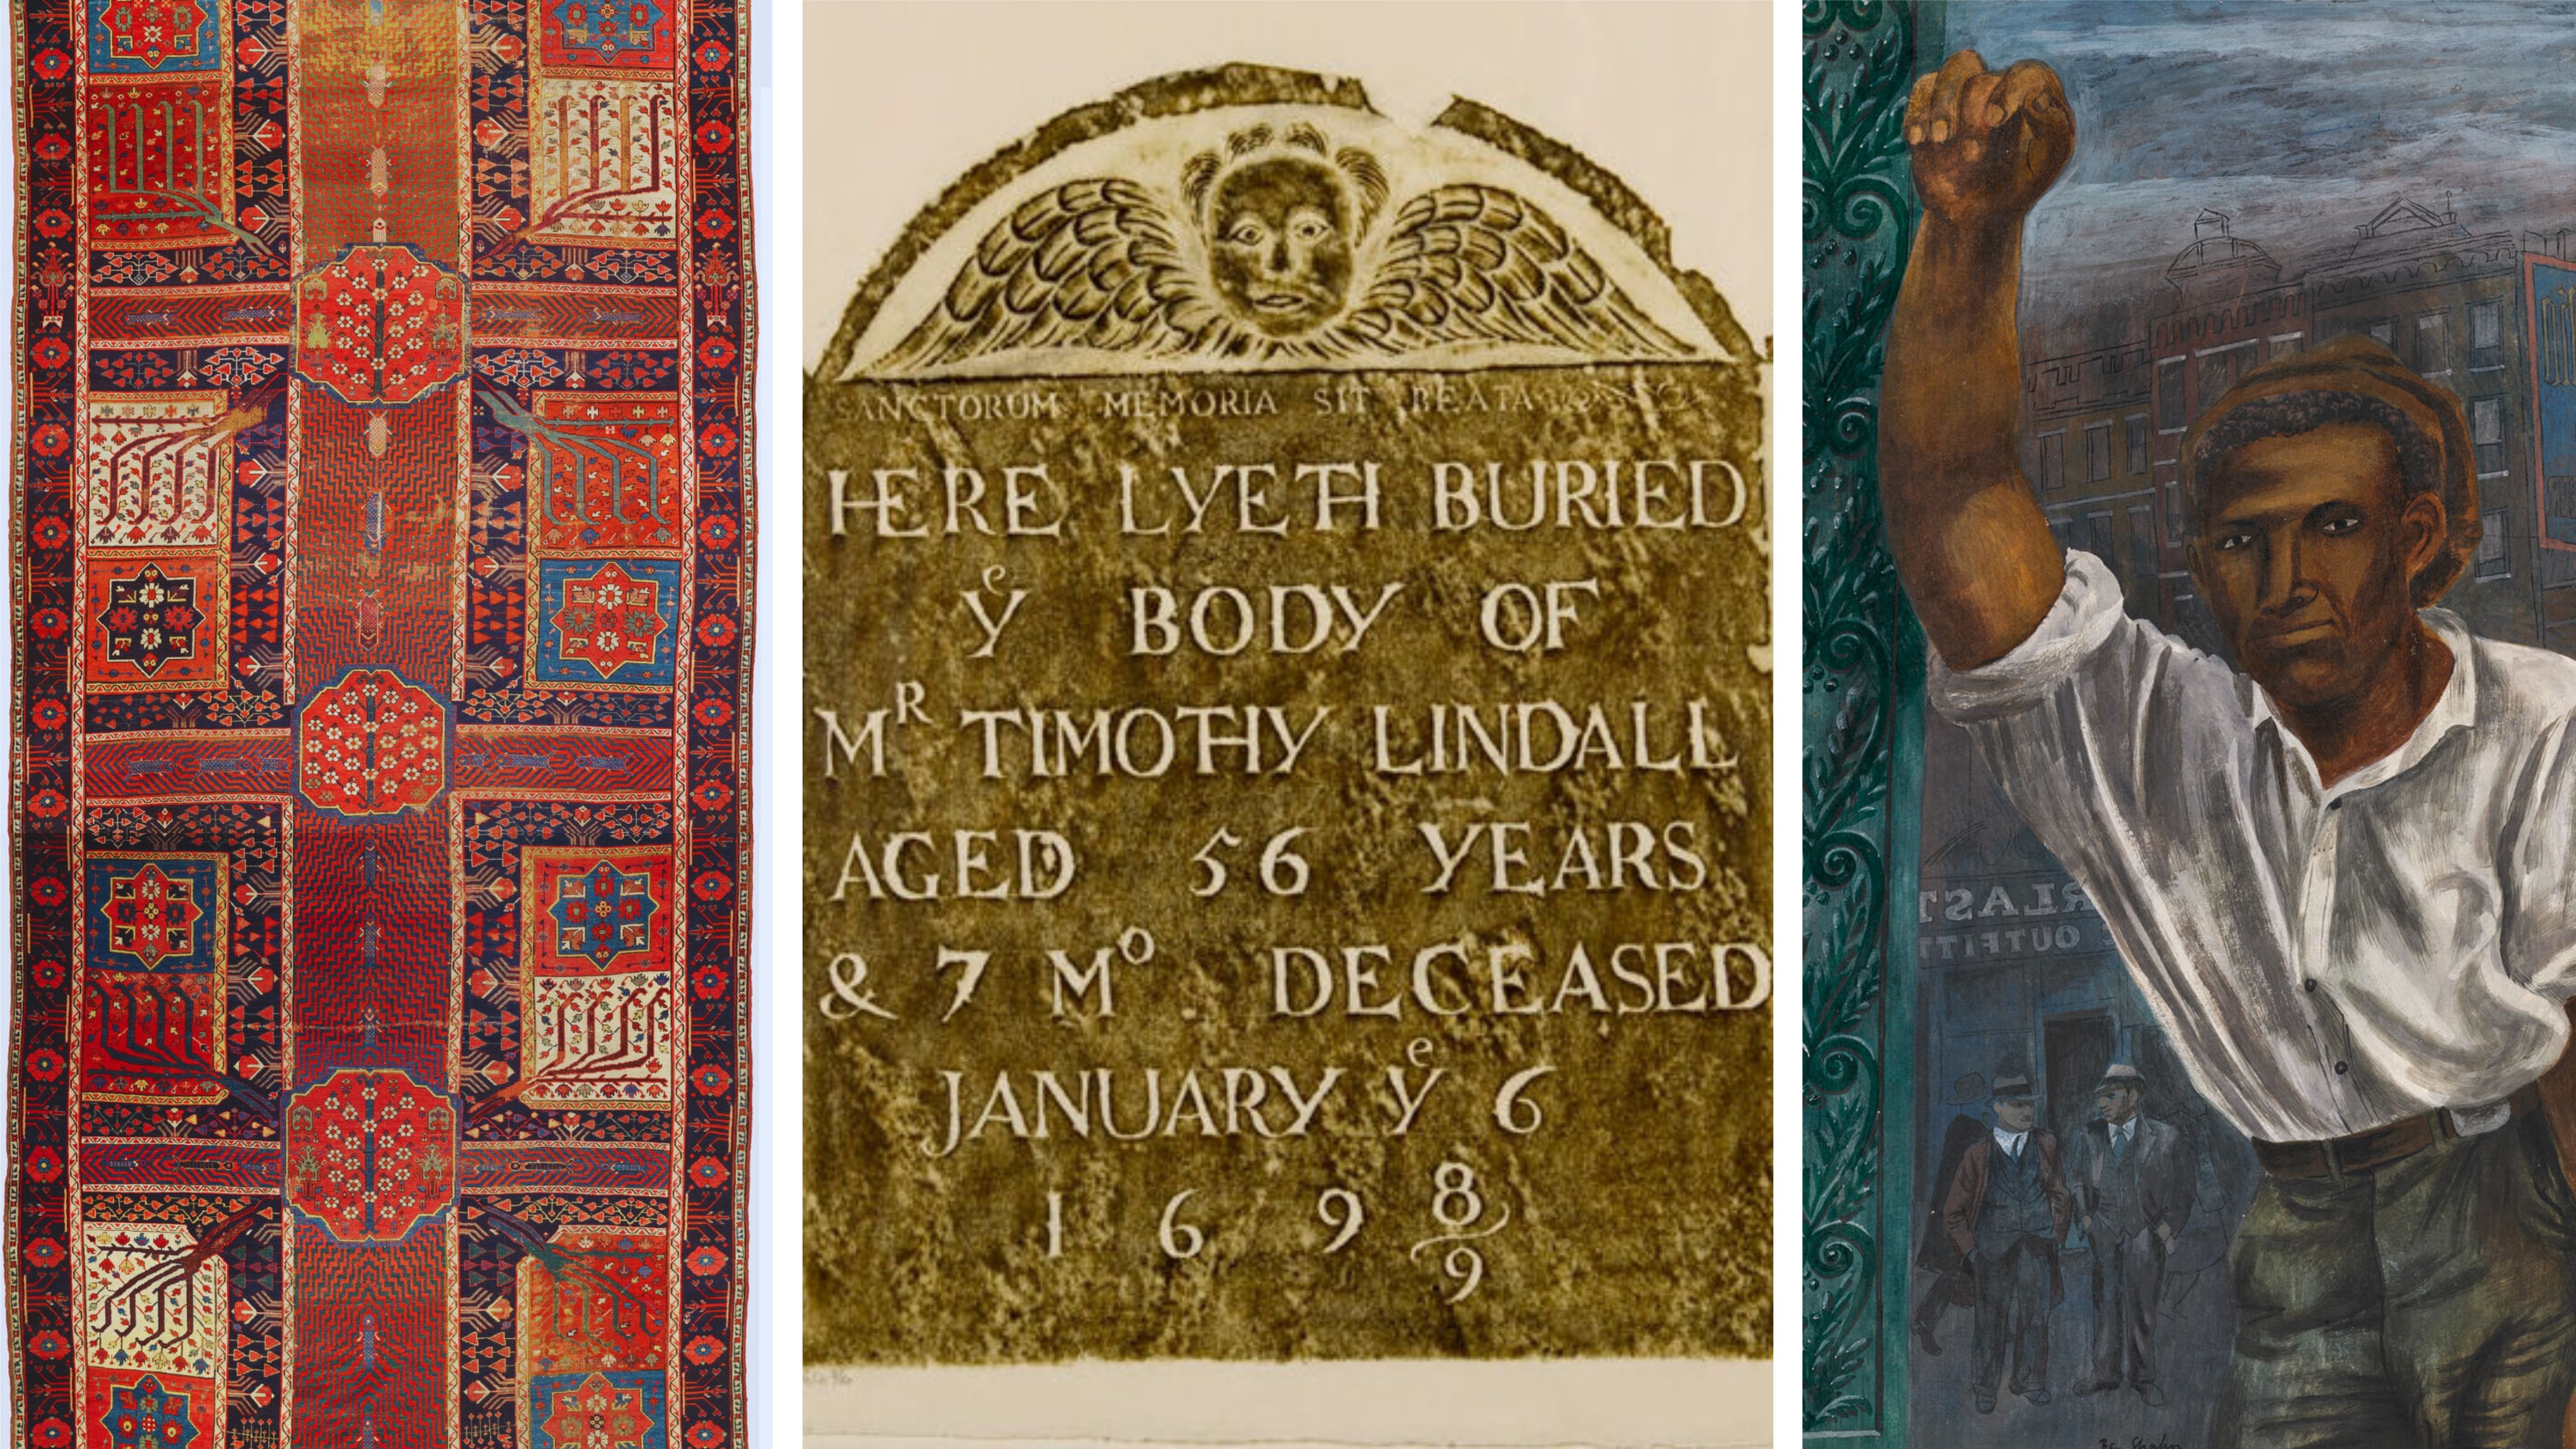 SANCTORUM MEMORIA SIT BEATA
HERE LYETH BURIED
Yᵉ BODY OF
Mᴿ TIMOTHY LINDALL
AGED 56 YEARS
& 7 Mº DECEASED
JANUARY Yᵉ 6
169 8/9
RLAST
OUTFITT
Ben Shahn